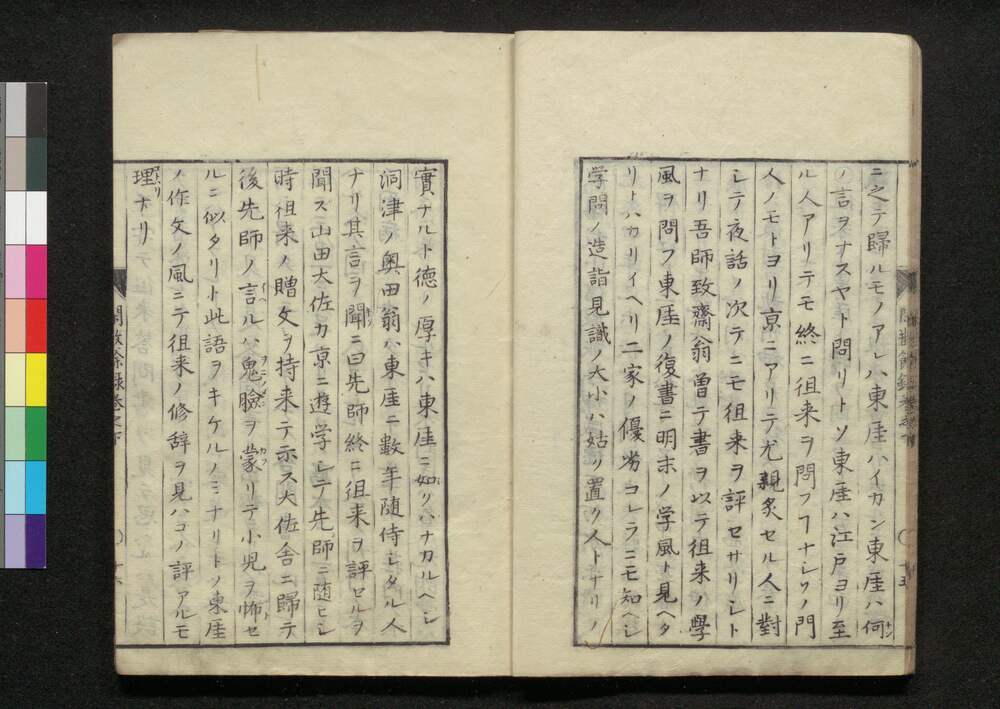 ニ之テ歸ルモノアレハ東厓ハイカン東厓ハ何
ノ言ヲナスヤト問リトソ東厓ハ江戸ヨリ至
ル人アリテモ終ニ徂来ヲ問フヿナシソノ門
人ノモトヨリ京ニアリテ尤親炙セル人ニ對
シテ夜話ノ次テニモ徂来ヲ評セサリシト
ナリ吾師致齋翁曽テ書ヲ以テ徂来ノ學
風ヲ問フ東厓ノ復書ニ明末ノ学風ト見ヘタ
リトハカリイヘリ二家ノ優劣コレラニモ知ヘシ
学問ノ造詣見識ノ大小ハ姑ク置ク人トナリノ
實ナルト徳ノ厚キハ東厓ニ如クハナカルヘシ
洞津ノ奥田翁ハ東厓ニ数年随侍シタル人
ナリ其言ヲ聞ニ曰先師終ニ徂来ヲ評セルヲ
聞ス山田大佐カ京ニ遊学シテ先師ニ随ヒシ
時徂来ノ贈文ヲ持来テ示ス大佐舎ニ歸テ
後先師ノ言ルハ鬼臉ヲ蒙リテ小児ヲ怖セ
ルニ似タリト此語ヲキケルノミナリトソ東厓
ノ作文ノ風ニテ徂来ノ修辞ヲ見ハコノ評アルモ
理ナリ
閒散餘録巻之下